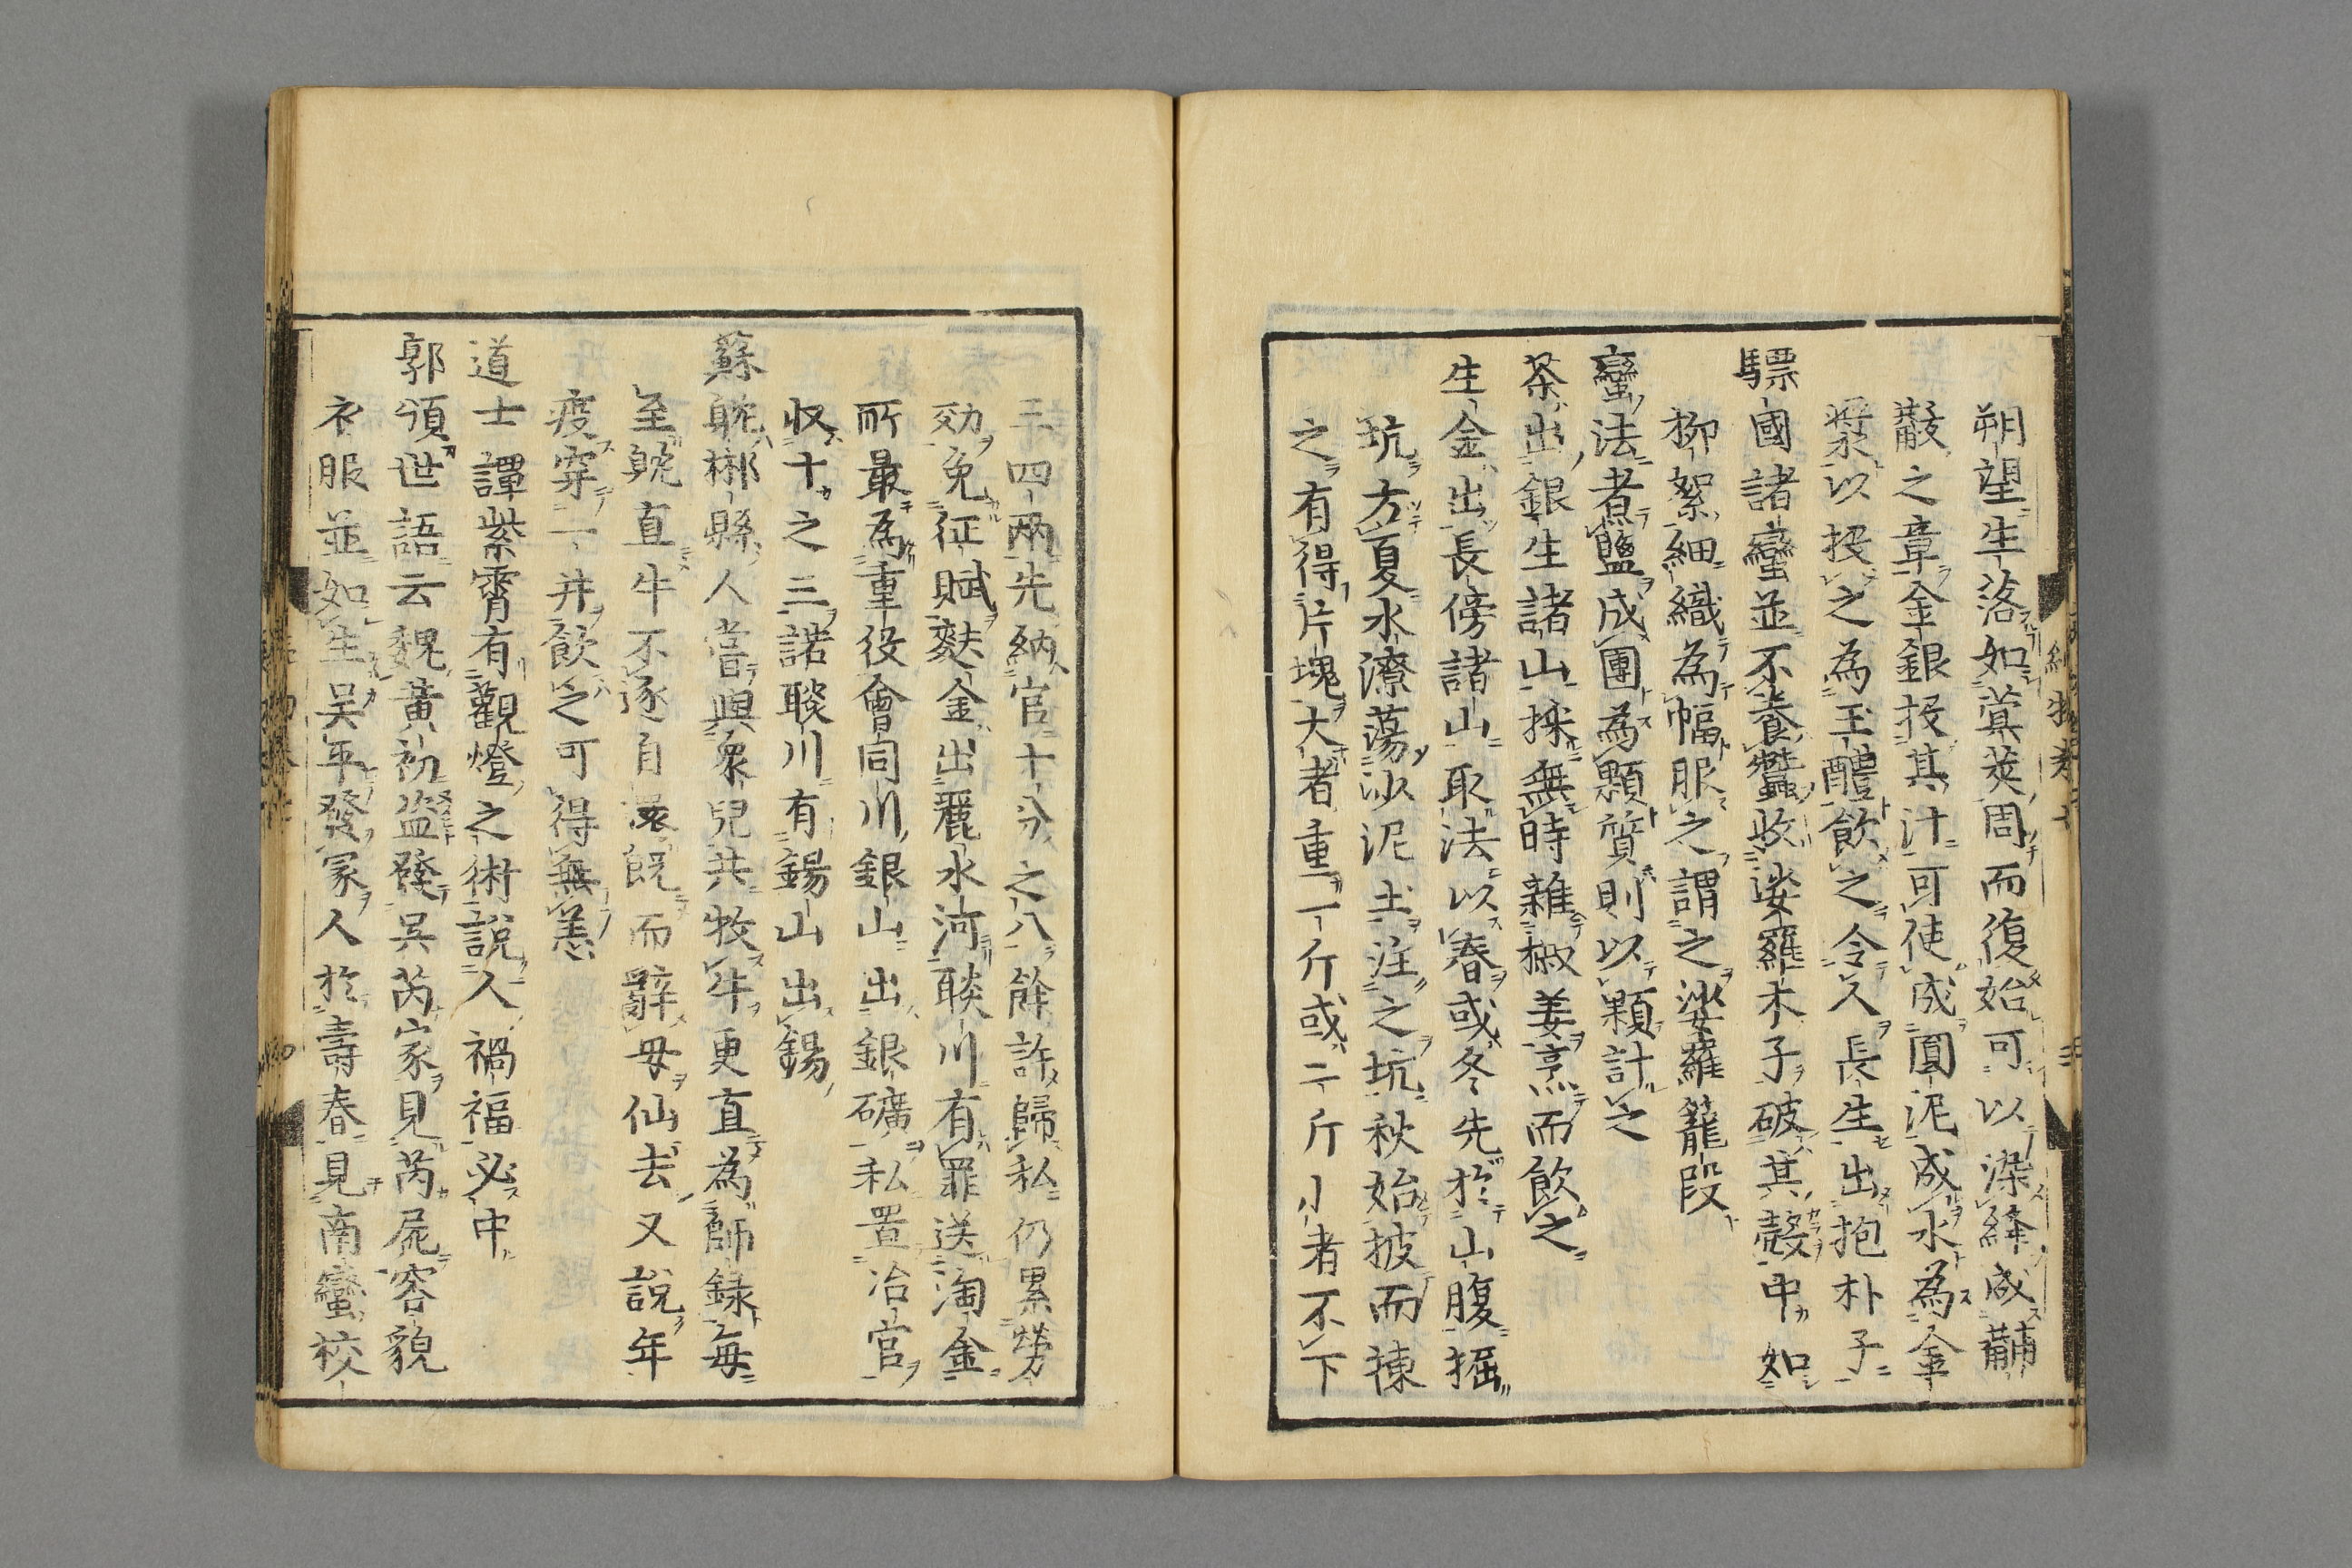 朔望生落如蓂莢周而復始可以染絳成黼
黻之章金銀投其汁可使成圓泥成水為金
漿以投之為玉醴飲之令人長生出抱朴子
驃國諸蠻並不養蠶收娑羅木子破其殼中如
柳絮細織為幅服之謂之娑蘿籠段
蠻法煮鹽成團為顆質則以顆計之
茶出銀生諸山採無時雜椒姜烹而飲之
生金出長傍諸山取法以春或冬先於山腹掘
坑方夏水潦蕩沙泥土注之坑秋始披而揀
之有得片塊大者重一斤或二斤小者不下
三四兩先納官十分之八餘許歸私仍累勞
効免征賦麩金出麗水河賧川有罪送淘金
所最為重役會同川銀山出銀礦私置冶官
収十之三諾賧川有錫山出錫
蘇耽郴縣人嘗與衆兒共牧牛更直為師録每
至躭直牛不逐自還既而辭母仙去又説年
疫穿一井飲之可得無恙
道士譚紫霄有觀燈之術説人禍福必中
郭頒世語云魏黃初盜發吳芮冢見芮屍容貌
衣服並如生吴平發冢人於壽春見南蠻校